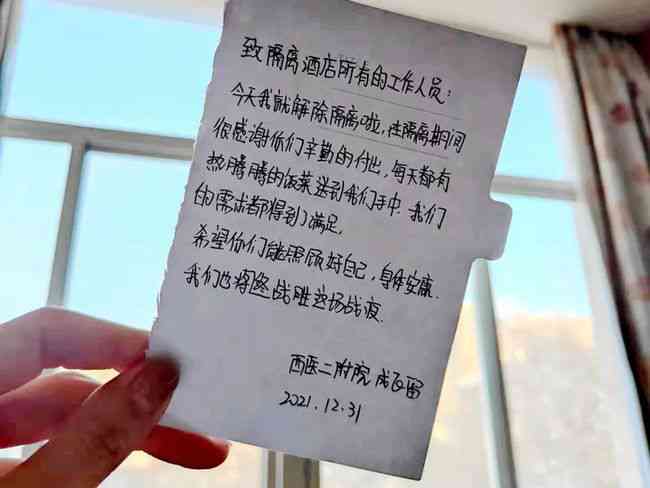 致隔离酒店所有的工作人员：
今天我就解除隔离啦，在隔离期间
很感谢你们辛勤的付出，每天都有
热腾腾的饭菜送到我们手中．我们
的需求都得到了满足．
希望你们能照顾好自己，身体安康．
我们也将终战胜这场战疫．
西医二附院
2021.12.31